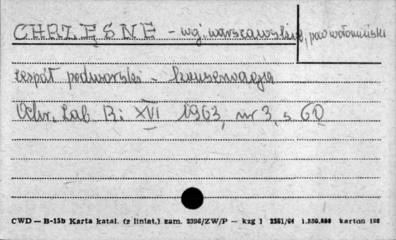 CHRZĘSNE - wg. warszawskie, pow. wołomiński
zespół podworski - konserwacja
Ochr. Zab. R: XVI 1963, nr 3, s 60
CWD — B-15b Karta katal. (z liniat.) zam. 2396/ZW/P — kzg 1 2251/64 1.250.000 karton 180